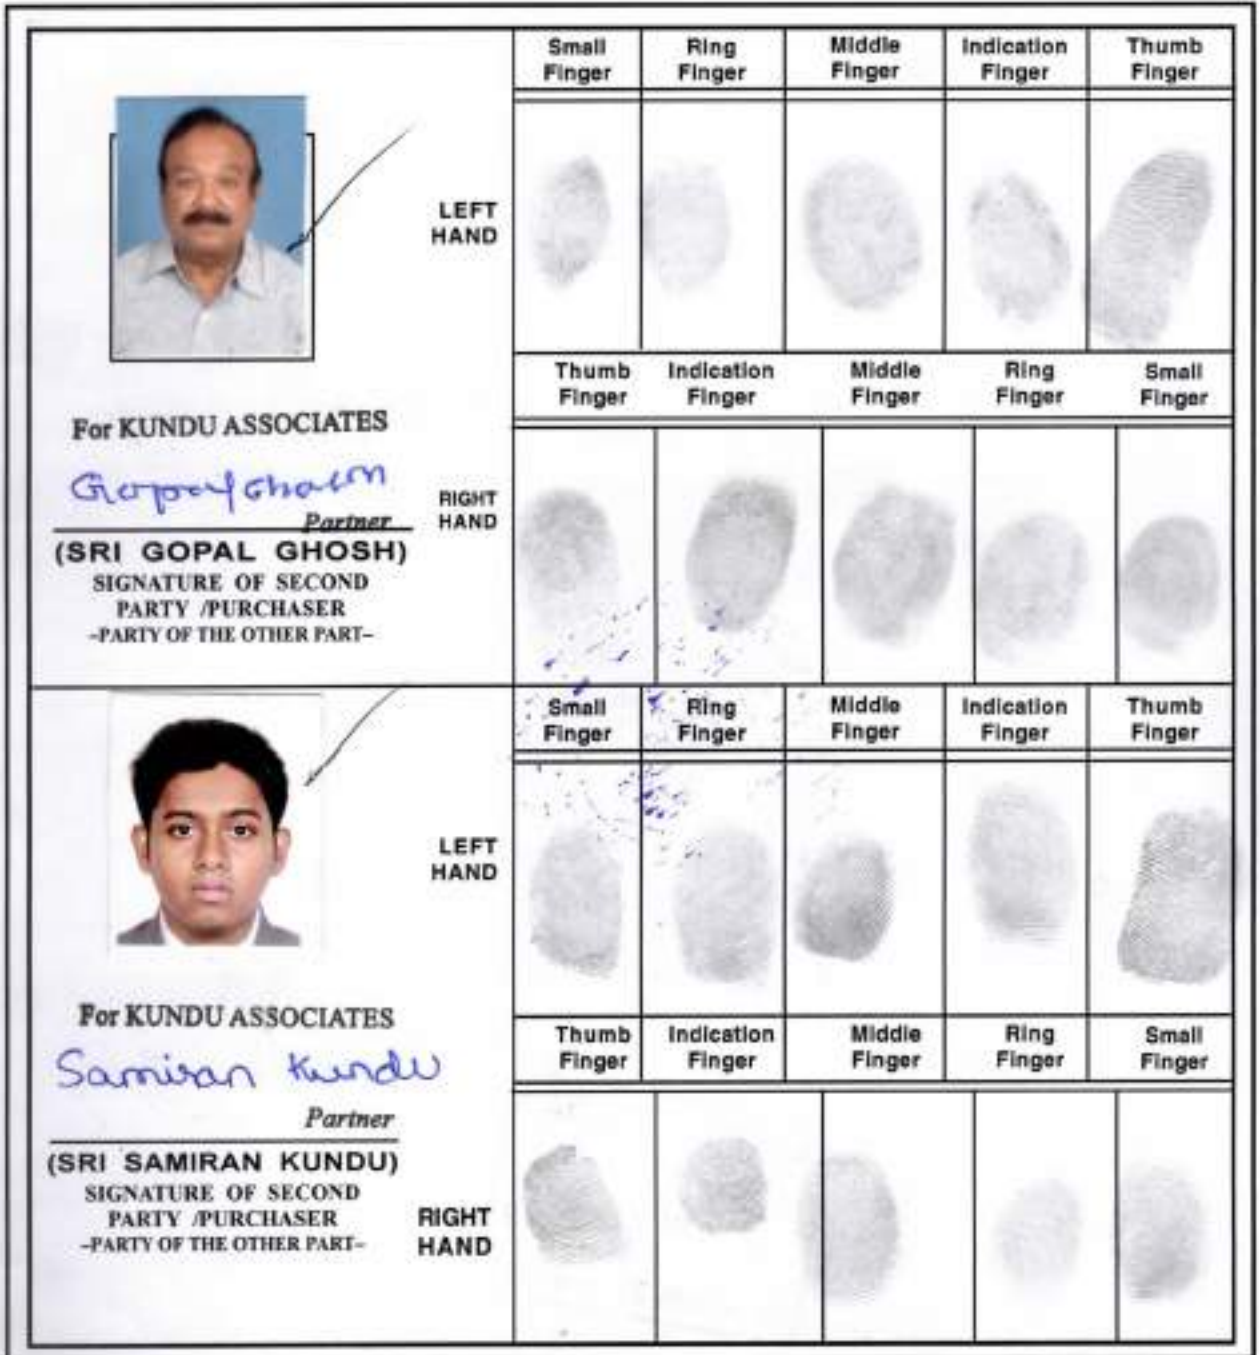 Small Finger Ring Finger Middle Finger Indication Finger Thumb Finger
LEFT HAND
Thumb Finger Indication Finger Middle Finger Ring Finger Small Finger
For KUNDU ASSOCIATES
Gopal Ghosh
Partner
RIGHT HAND
(SRI GOPAL GHOSH)
SIGNATURE OF SECOND
PARTY /PURCHASER
-PARTY OF THE OTHER PART-
Small Finger Ring Finger Middle Finger Indication Finger Thumb Finger
LEFT HAND
Thumb Finger Indication Finger Middle Finger Ring Finger Small Finger
For KUNDU ASSOCIATES
Samiran Kundu
Partner
(SRI SAMIRAN KUNDU)
SIGNATURE OF SECOND
PARTY /PURCHASER
-PARTY OF THE OTHER PART-
RIGHT HAND